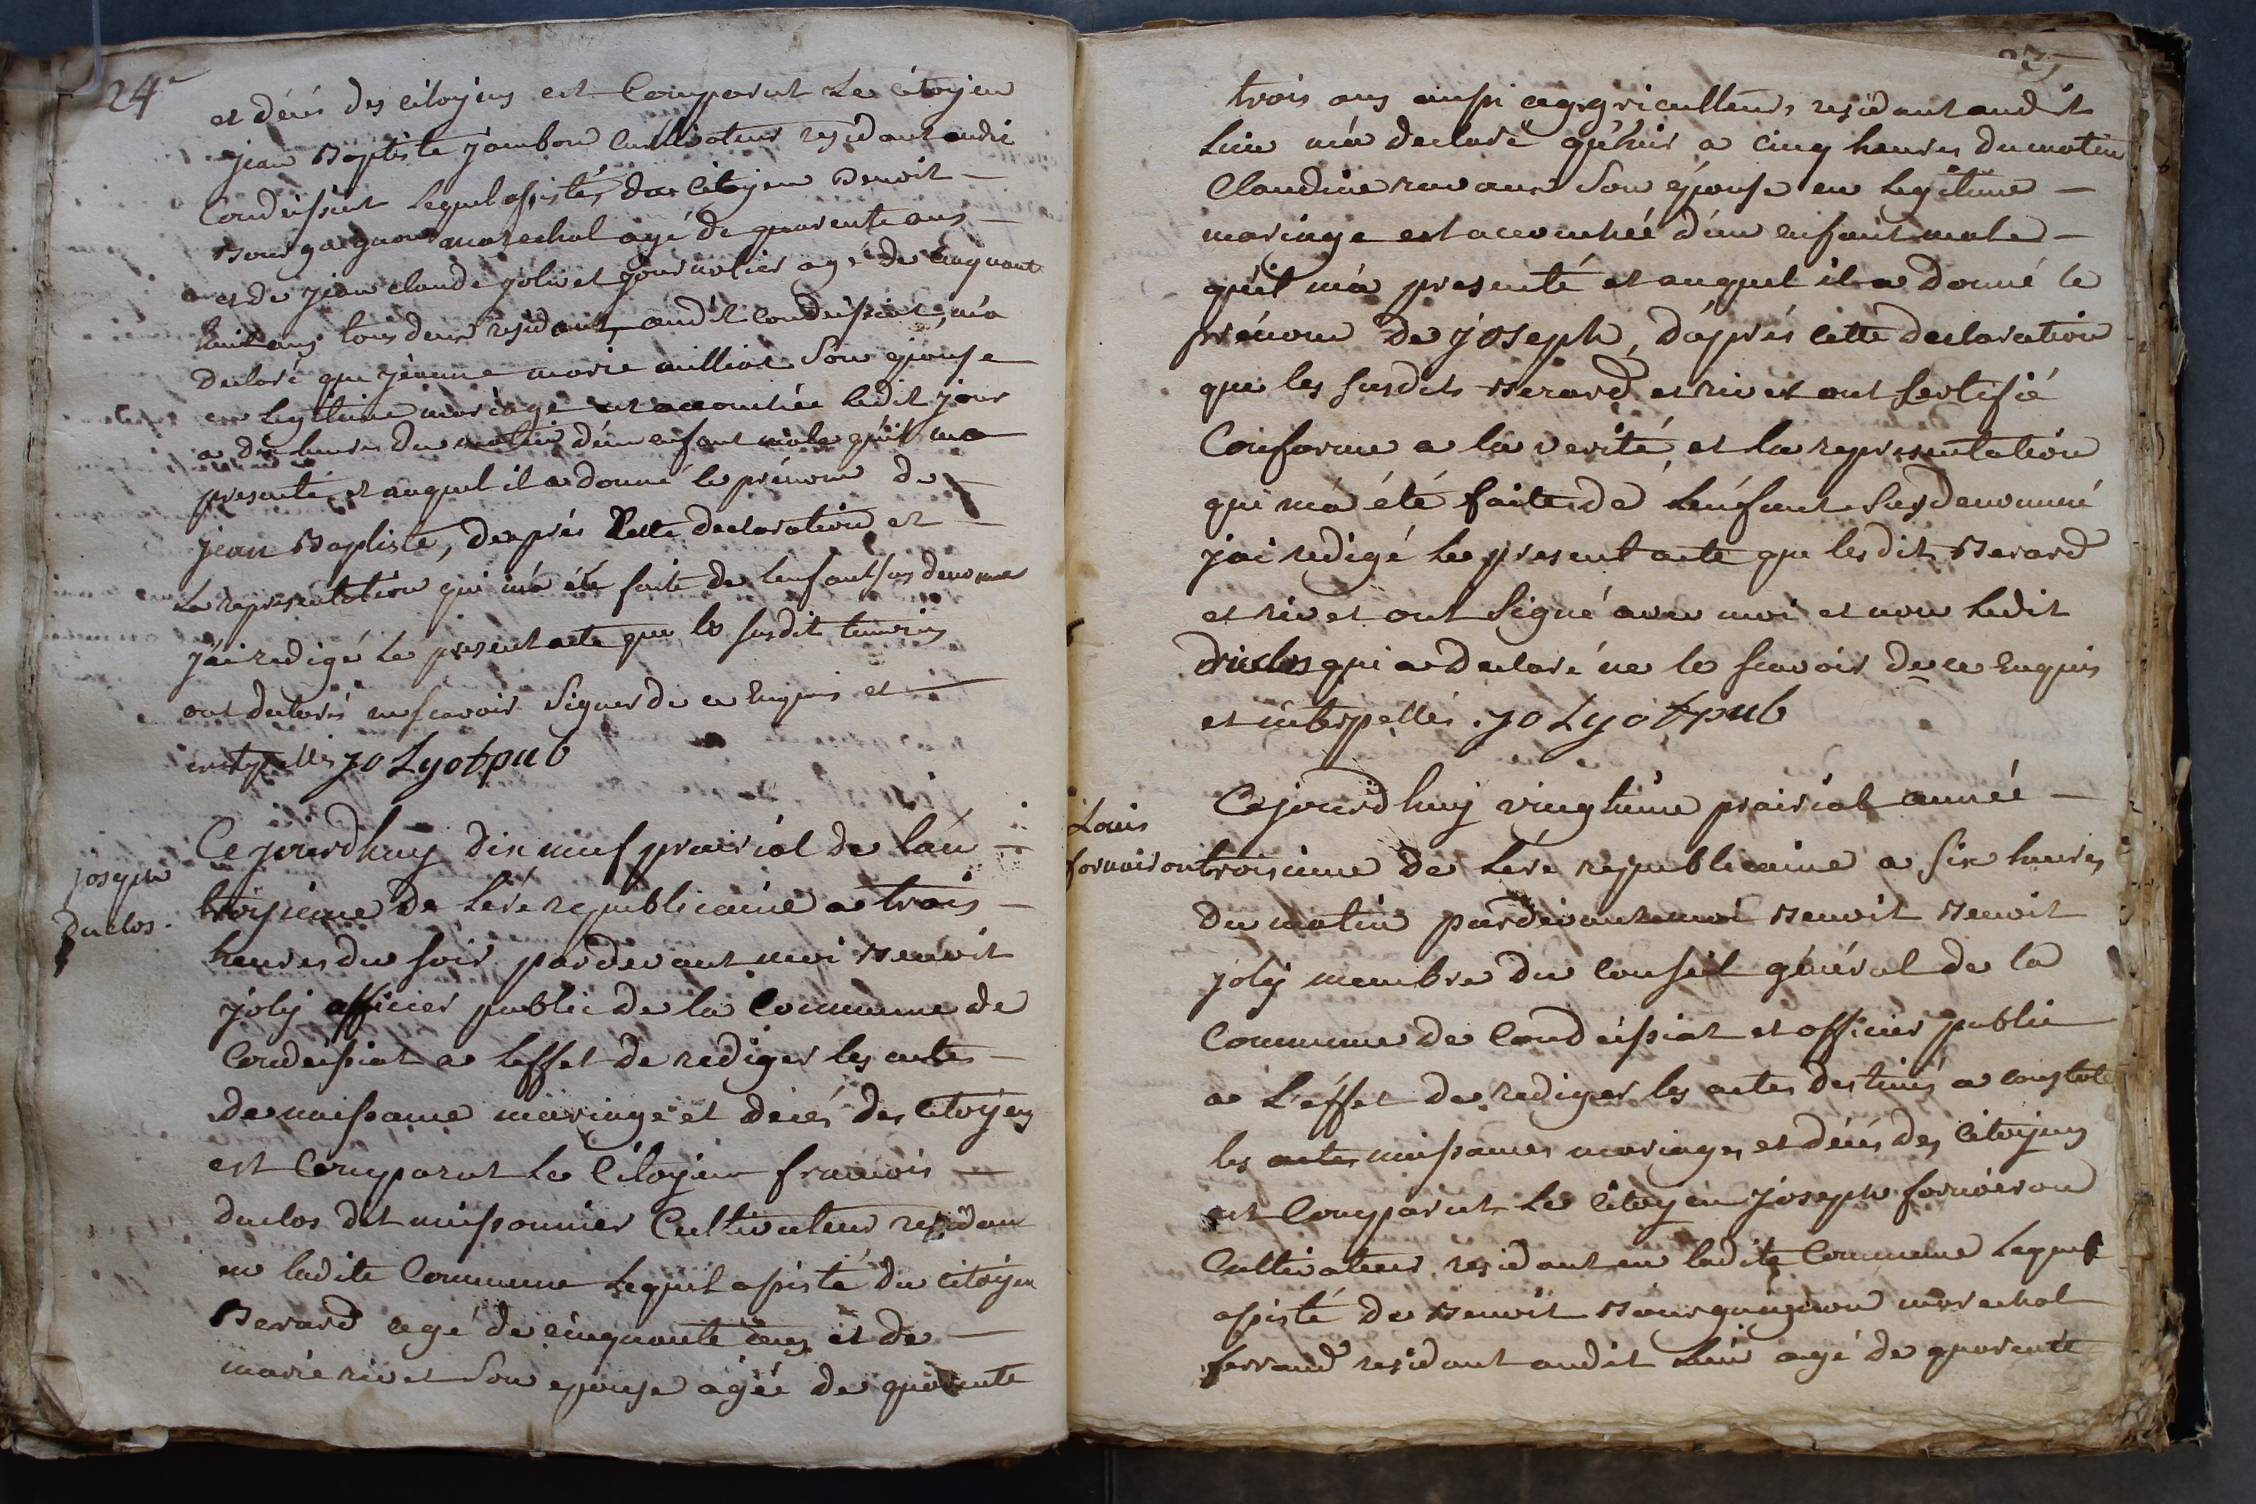 24
et décés des citoyens est Comparut Le citoyen
jean Baptiste jambon Cultivateur residant audit
Condeissiat Lequel assisté du citoyen Benoit
Bourguignon marechal agé de quarente ans
et de jean claude jolivet journalier agé de cinquante
huit ans tous deux residants audit condeissiat, m'a
declaré que jeanne marie milliat son epouse
en legitime mariage est accouchée ledit jour
a dix heures du matin d'un enfant mâle qu'il ma
presenté et auquel il a donné le prénom de
jean Baptiste, d'aprés Cette declaration et
La representation qui m'a été faite de l'enfant susdenomé
j'ai redigé Le present acte que le susdit temoins
ont declarés ne scavoir Signer de ce Enquis et
interpellés jo Ly of pub
joseph
Duclos.
Ce jourdhuy dix neuf prairial de l'an
troisieme de L'ére republicaine a trois
heures du soir pardevant moi Benoit
joly officier public de la Commune de
Condeissiat a l'effet de rediger les actes
de naissance mariage et décés des Citoyens
est Comparut Le Citoyen francois
duclos dit missonnier Cultivateur residant
en ladite Commune Lequel assisté du citoyen
Berard agé de cinquante ans et de
marie rivet Son epouse agée de quarente
25
trois ans aussi aggriculteurs residant audit
Lieu m'a declaré qu'hier a cinq heures du matin
Claudine son épouse en Legitime
mariage est accouchée d'un enfant male
qu'il m'a presenté et auquel il a donné le
prénom de joseph, d'aprés cette declaration
que les susdits Berard et rivet ont certifié
Conforme a la verité, et la representation
qui m'a été faite de L'enfant Susdenommé
j'ai redigé le present acte que lesdit Berard
et rivet ont Signé avec moi et non Ledit
duclos qui a declaré ne le scavoir de ce Enquis
et interpellés. jo Ly of pub
Louis
fornairon
Cejourdhuy vingtiéme prairial année
troisieme de L'ere republicaine a six heures
du matin pardevant moi Benoit Benoit
joly membre du conseil général de la
Commune de Condeissiat et officier public
a L'effet de rediger les actes destinés a constater
les actes naissances mariages et décés des Citoyens
est Comparut Le Citoyen joseph fornairon
Cultivateur residant en ladite Commune Lequel
assisté de Benoit Bourguignon marechal
ferrand residant audit Lieu agé de quarente